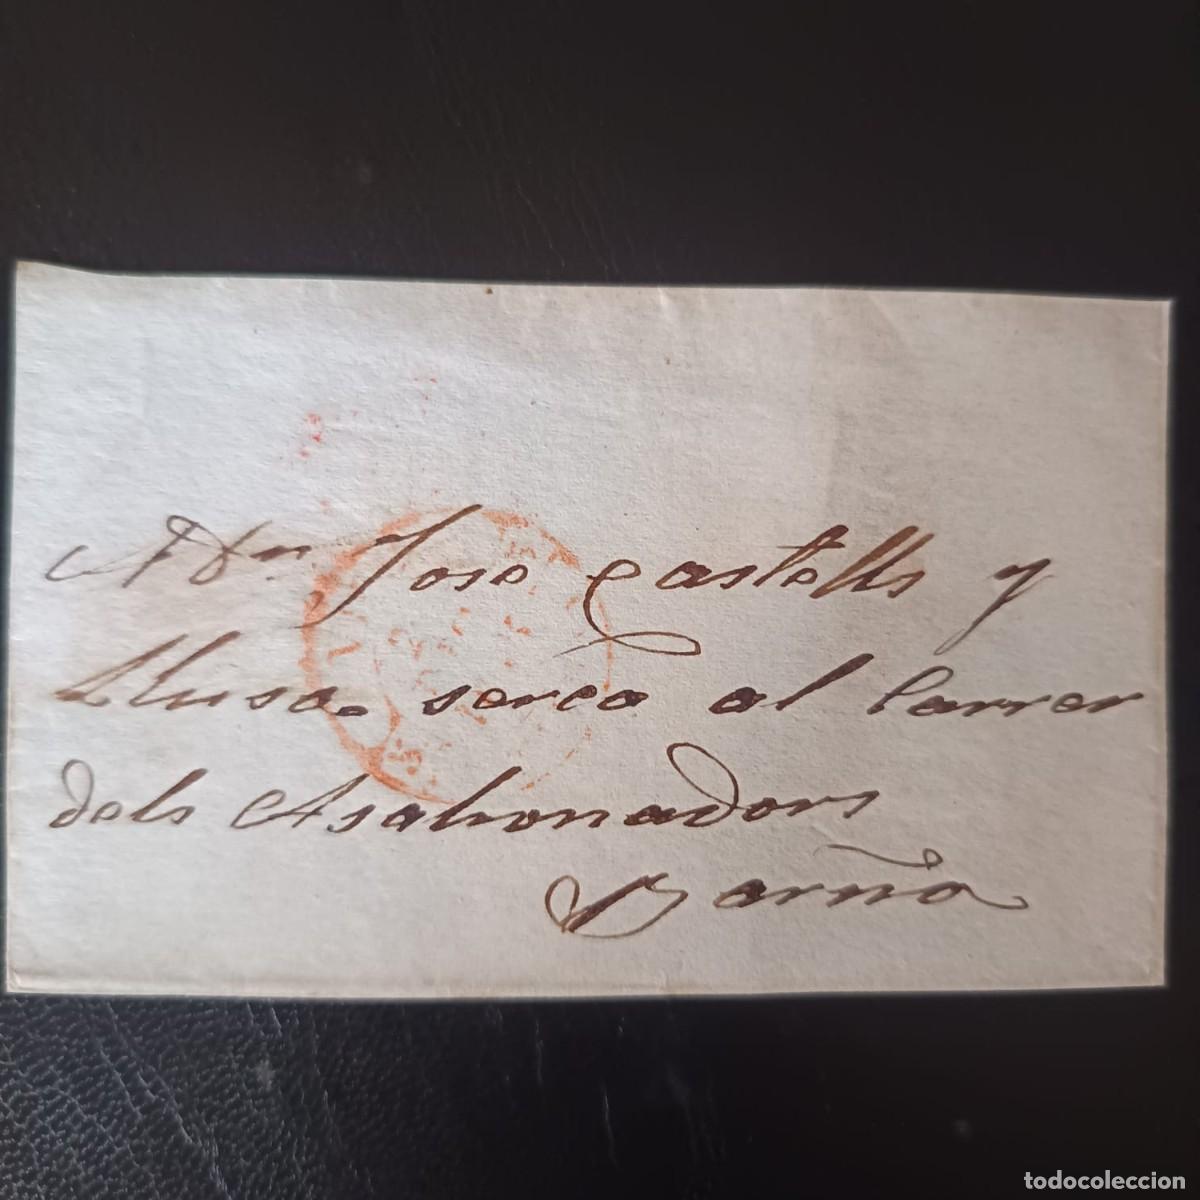 A Dn Jose Castells y
Llusa. serca al Carrer
dels Asahonadors
Barña
todocoleccion